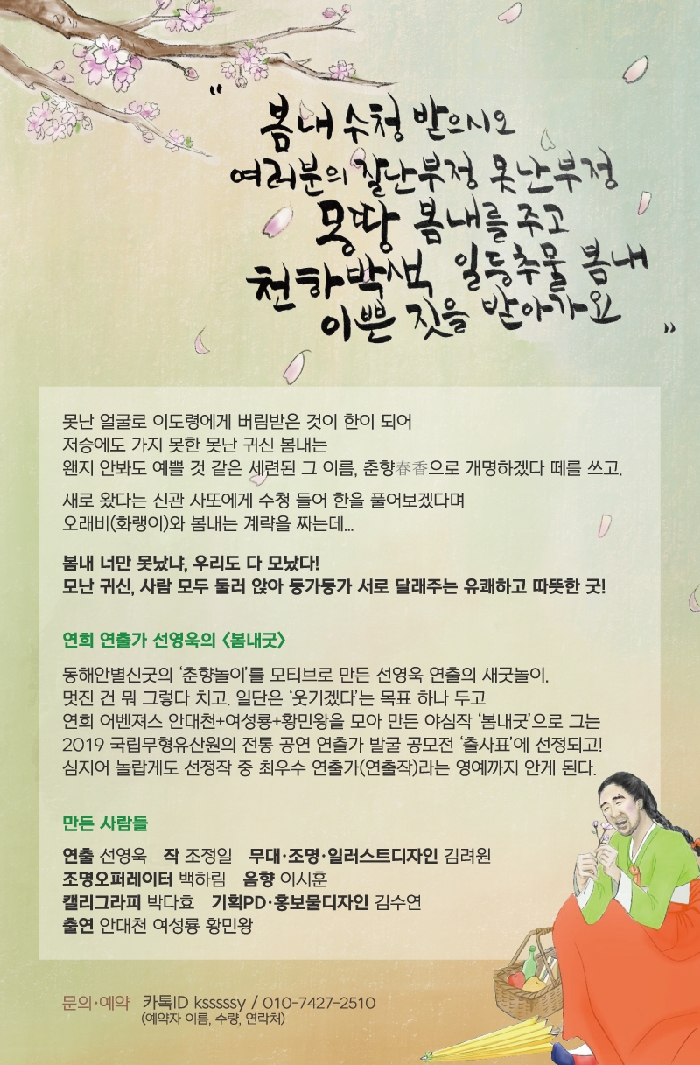 “
봄내 수청 받으시오
여러분의 잘난부정 못난부정
몽땅 봄내를 주고
천하박색 일등추물 봄내
이쁜 짓을 받아가요
”
못난 얼굴로 이도령에게 버림받은 것이 한이 되어
저승에도 가지 못한 못난 귀신 봄내는
왠지 안봐도 예쁠 것 같은 세련된 그 이름, 춘향春香으로 개명하겠다 떼를 쓰고,
새로 왔다는 신관 사또에게 수청 들어 한을 풀어보겠다며
오래비(화랭이)와 봄내는 계략을 짜는데...
봄내 너만 못났냐, 우리도 다 모났다!
모난 귀신, 사람 모두 둘러 앉아 둥가둥가 서로 달래주는 유쾌하고 따뜻한 굿!
연희 연출가 선영욱의 <봄내굿>
동해안별신굿의 ‘춘향놀이’를 모티브로 만든 선영욱 연출의 새굿놀이.
멋진 건 뭐 그렇다 치고. 일단은 ‘웃기겠다’는 목표 하나 두고
연희 어벤져스 안대천+여성룡+황민왕을 모아 만든 야심작 ‘봄내굿’으로 그는
2019 국립무형유산원의 전통 공연 연출가 발굴 공모전 ‘출사표’에 선정되고!
심지어 놀랍게도 선정작 중 최우수 연출가(연출작)라는 영예까지 안게 된다.
만든 사람들
연출 선영욱 작 조정일 무대·조명·일러스트디자인 김려원
조명오퍼레이터 백하림 음향 이시훈
캘리그라피 박다효 기획PD·홍보물디자인 김수연
출연 안대천 여성룡 황민왕
문의·예약 카톡ID ksssssy / 010-7427-2510
(예약자 이름, 수량, 연락처)